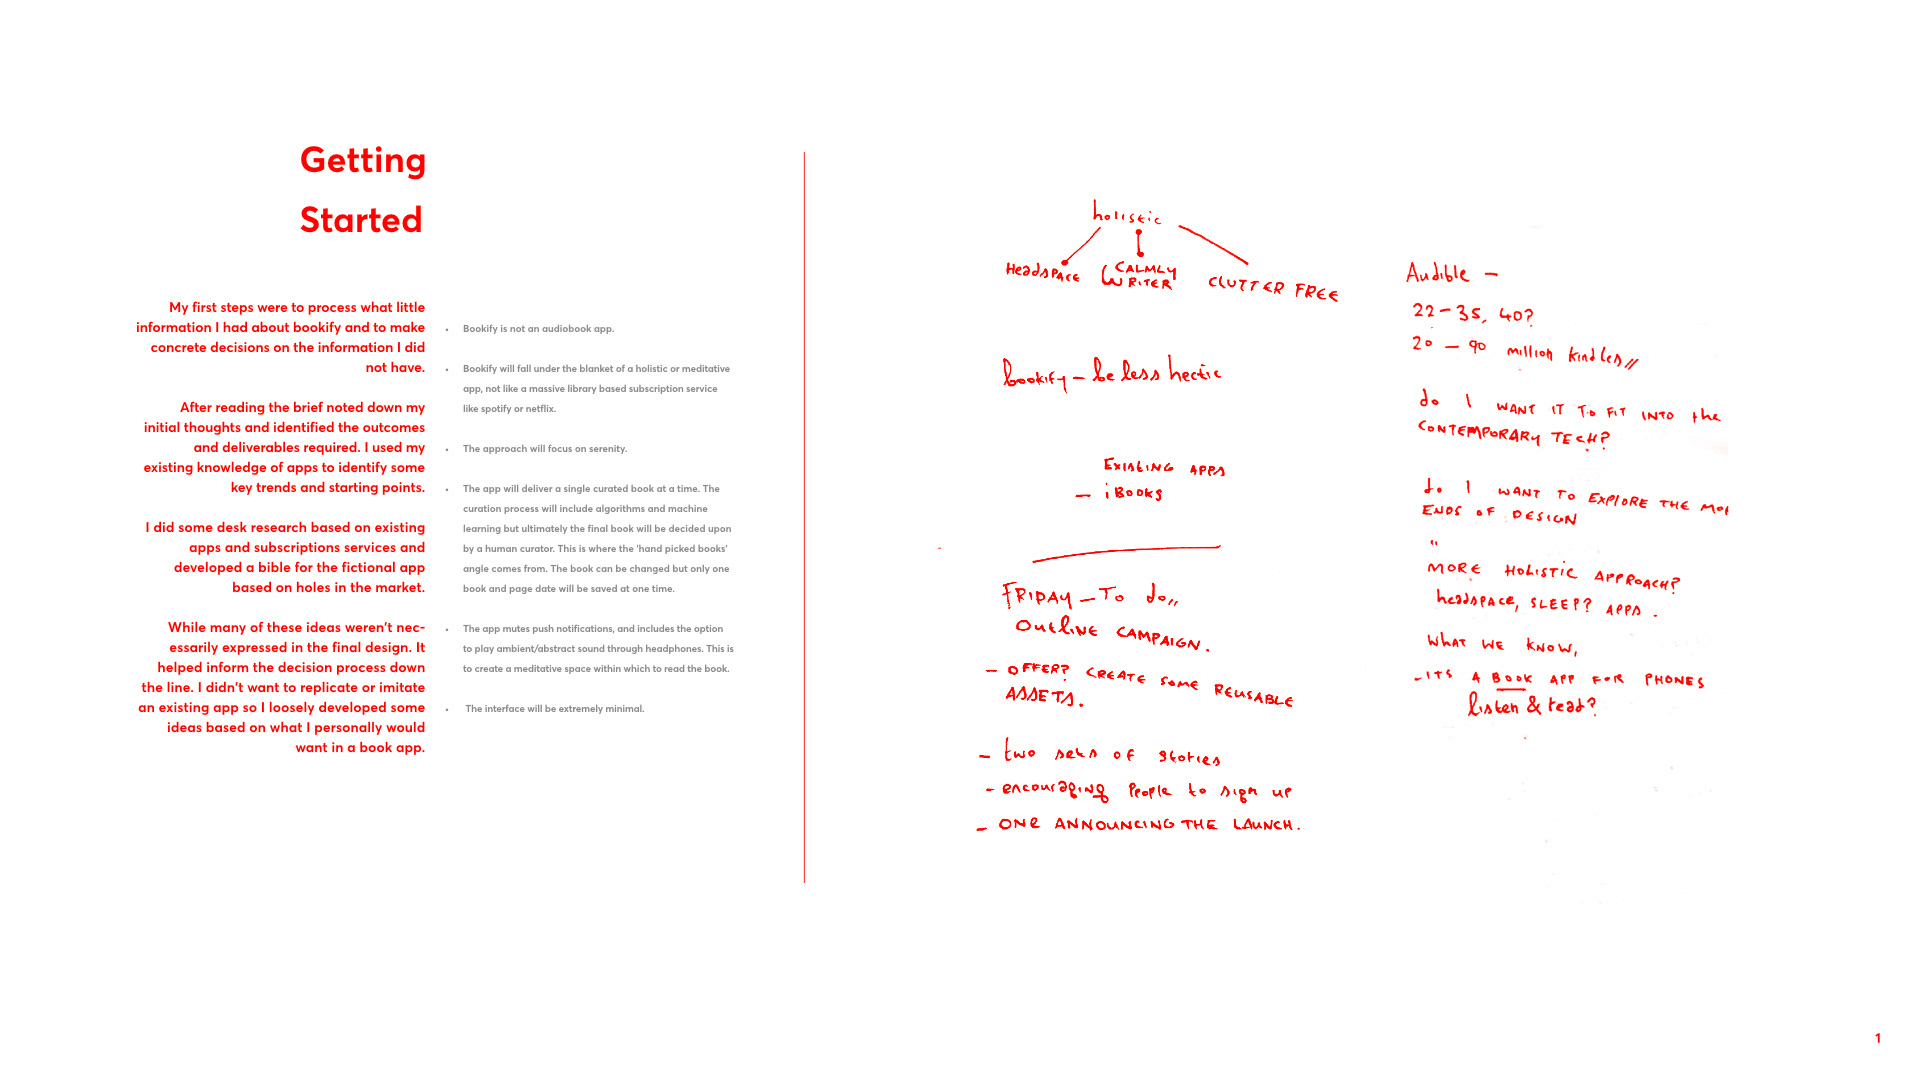 Getting
Started
My first steps were to process what little
information I had about bookify and to make
concrete decisions on the information I did
not have.
After reading the brief noted down my
initial thoughts and identified the outcomes
and deliverables required. I used my
existing knowledge of apps to identify some
key trends and starting points.
I did some desk research based on existing
apps and subscriptions services and
developed a bible for the fictional app
based on holes in the market.
While many of these ideas weren't nec-
essarily expressed in the final design. It
helped inform the decision process down
the line. I didn't want to replicate or imitate
an existing app so I loosely developed some
ideas based on what I personally would
want in a book app.
• Bookify is not an audiobook app.
• Bookify will fall under the blanket of a holistic or meditative
app, not like a massive library based subscription service
like spotify or netflix.
• The approach will focus on serenity.
• The app will deliver a single curated book at a time. The
curation process will include algorithms and machine
learning but ultimately the final book will be decided upon
by a human curator. This is where the 'hand picked books'
angle comes from. The book can be changed but only one
book and page date will be saved at one time.
• The app mutes push notifications, and includes the option
to play ambient/abstract sound through headphones. This is
to create a meditative space within which to read the book.
• The interface will be extremely minimal.
holistic
HeadSPACE
CALMLY
WRITER
CLUTTER FREE
bookify – be less hectic
EXISTING APPS
– iBOOKS
FRIDAY – To do,,
OUtLINE CAMPAIGN.
– OFFER? CREATE SOME REUSABLE
ASSETS.
– two sets of stories
– encouraging people to sign up
– ONE ANNOUNCING THE LAUNCH.
Audible –
22 – 35, 40?
20 – 90 million kindles//
do I WANT IT TO FIT INTO the
CONTEMPORARY TECH?
do I WANT TO EXPLORE THE
ENDS OF DESIGN
"
MORE HOLISTIC APPROACH?
headspace, SLEEP? APPS.
WHAT WE KNOW,
- ITS A BOOK APP FOR PHONES
listen & read?
1